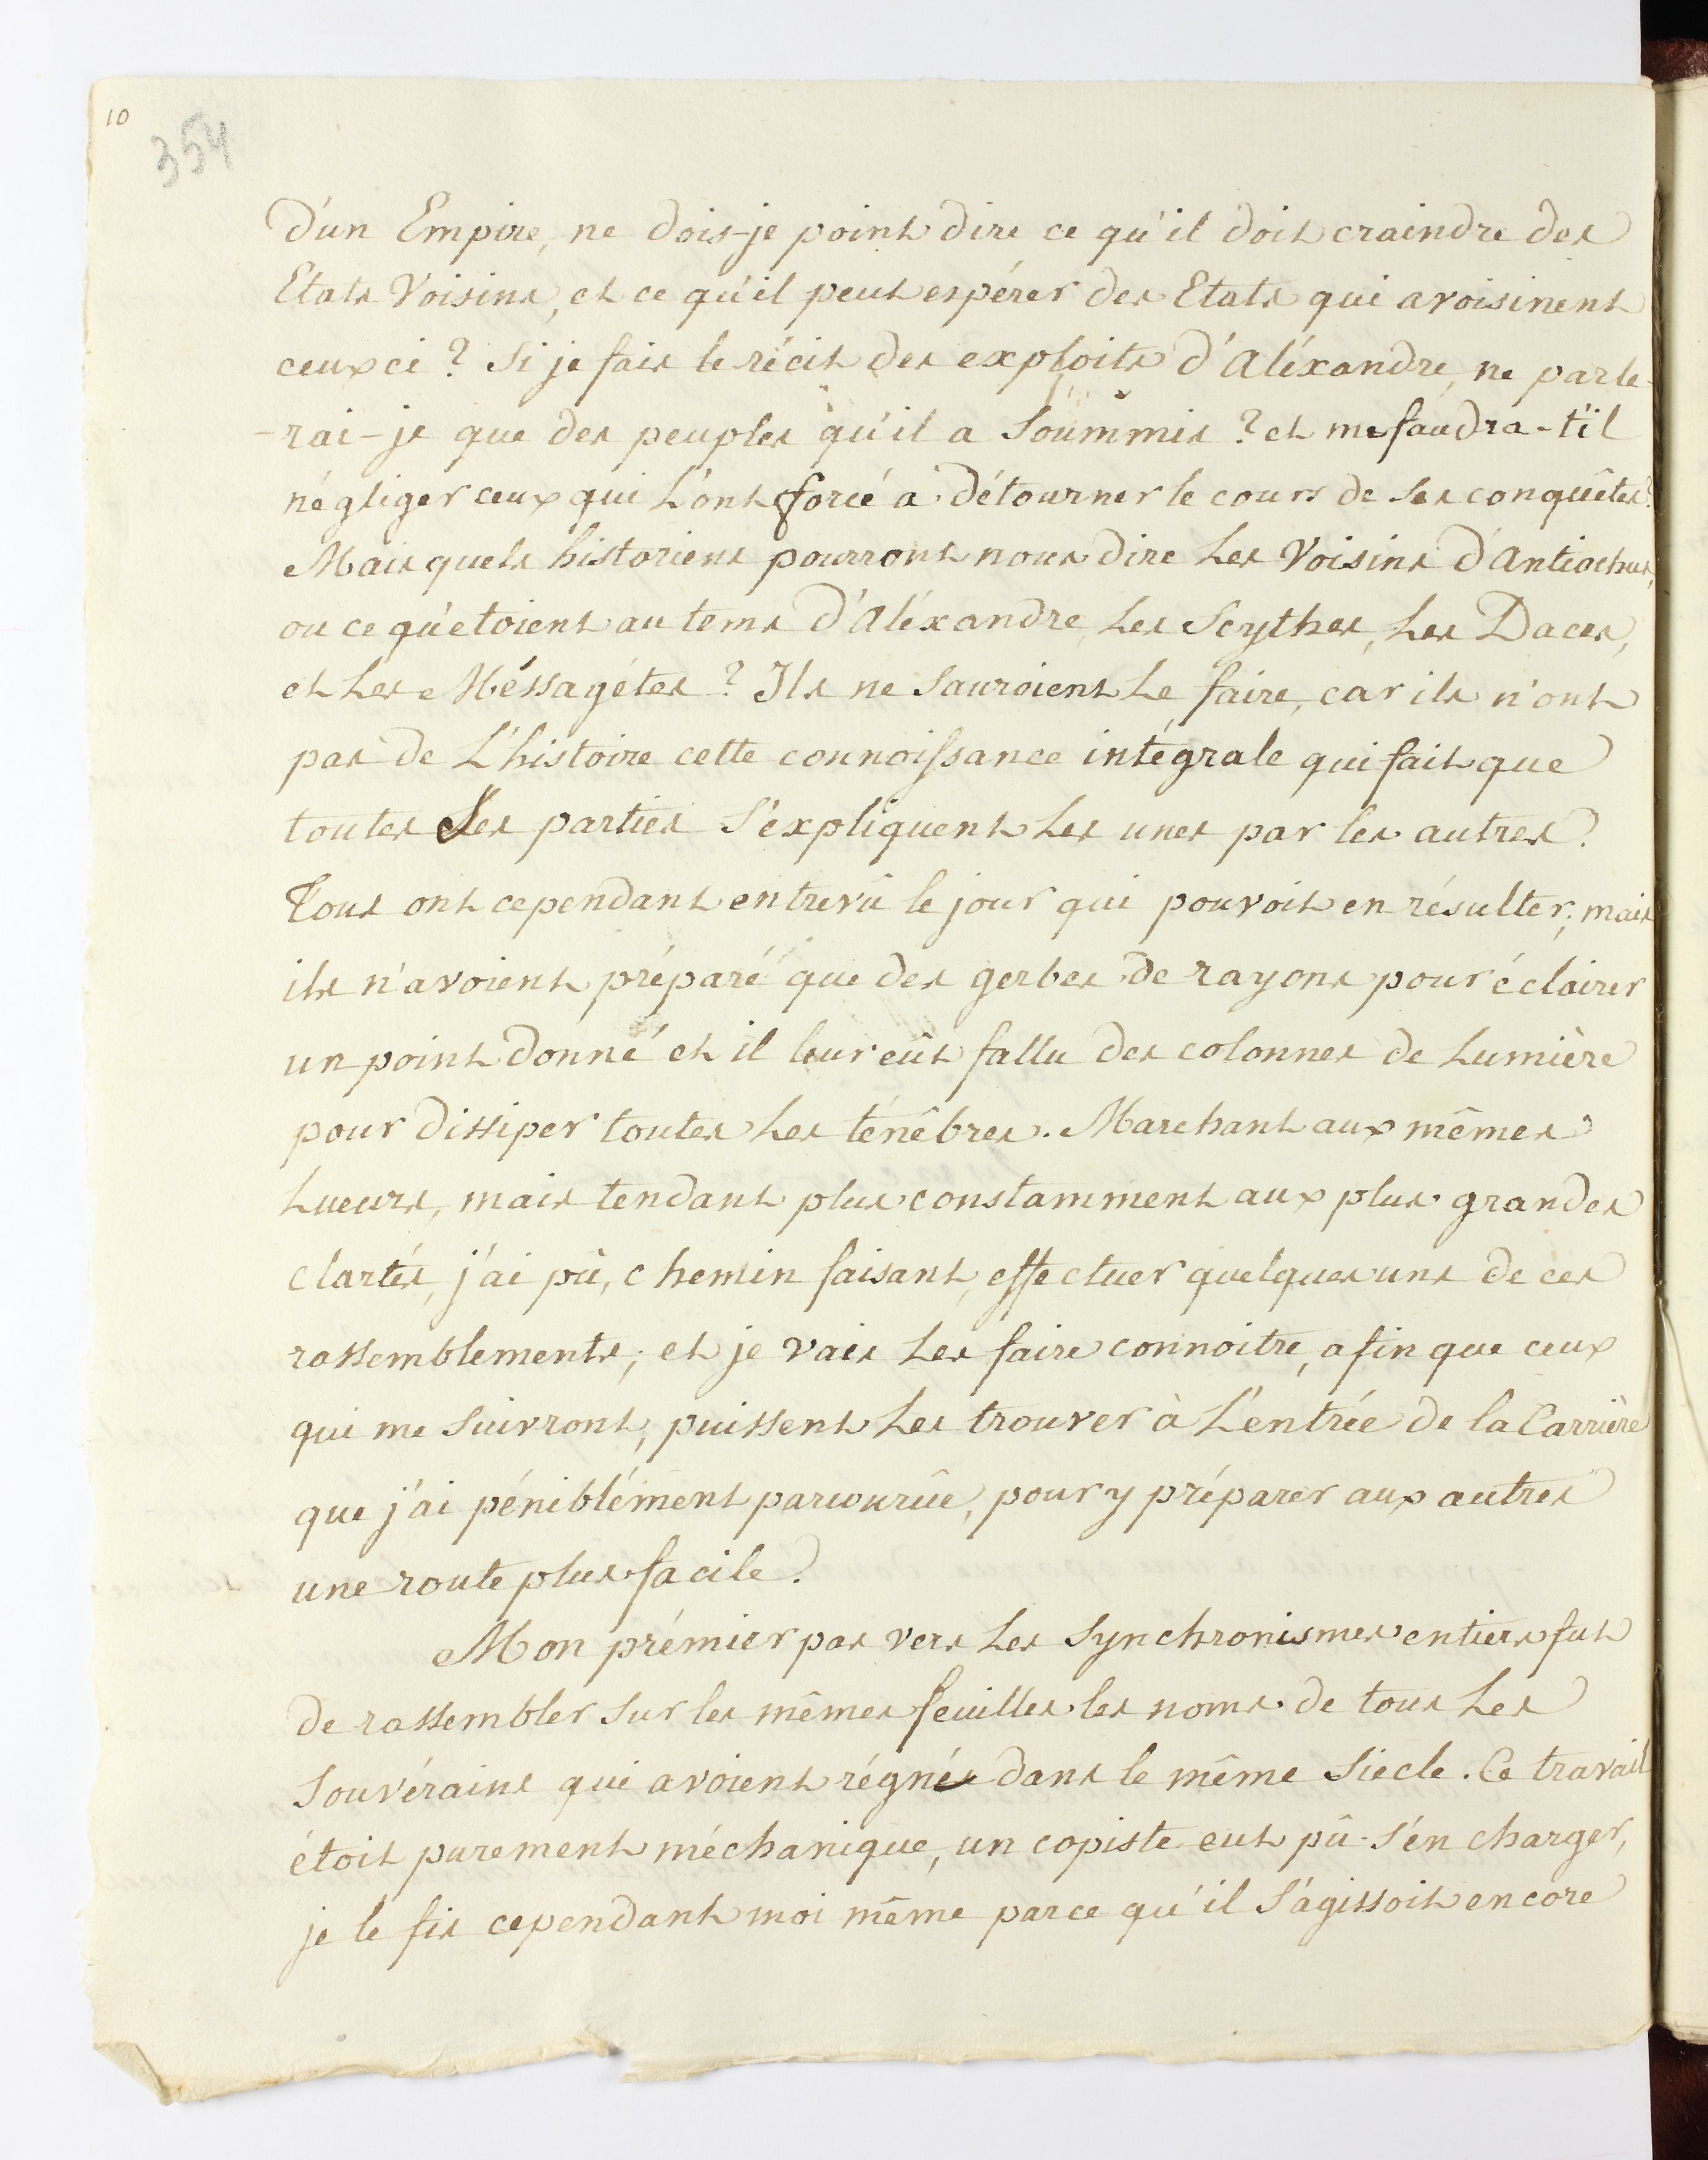 10
354
d'un Empire, ne dois-je point dire ce qu'il doit craindre des
Etats Voisins, et ce qu'il peut espérer des Etats qui avoisinent
ceux ci ? Si je fais le récit des exploits d'Aléxandre, ne parle-
-rai-je que des peuples qu'il a Soummis ? et me faudra-t'il
négliger ceux qui L'ont forcé a détourner le cours de Ses conquêtes?
Mais quels historiens pourront nous dire Les Voisins d'Antiochus,
ou ce qu'etoient au tems d'Aléxandre, Les Scythes, Les Daces,
et Les Méssagétes ? Ils ne Sauroient Le faire, car ils n'ont
pas de L'histoire cette connoissance intégrale qui fait que
toutes Ses parties S'expliquent Les unes par les autres.
Tous ont cependant entrevû le jour qui pouvoit en résulter; mais
ils n'avoient préparé que des gerbes de rayons pour éclairer
un point donné et il leur eût fallu des colonnes de Lumière
pour dissiper toutes Les ténêbres. Marchant aux mêmes
Lueurs, mais tendant plus constamment aux plus grandes
clartés, j'ai pû, chemin faisant, effectuer quelques uns de ces
rassemblements; et je vais Les faire connoitre, afin que ceux
qui me Suivront, puissent Les trouver à L'entrée de la Carrière
que j'ai péniblément parcourûe, pour y préparer aux autres
une route plus facile.
Mon prémier pas vers Les Synchronismes entiers fut
de rassembler Sur les mêmes feuilles les noms de tous Les
Souvérains qui avoient régnés dans le même Siecle. Ce travail
étoit purement méchanique, un copiste eut pû S'en charger,
je le fis cependant moi même parce qu'il S'agissoit encore